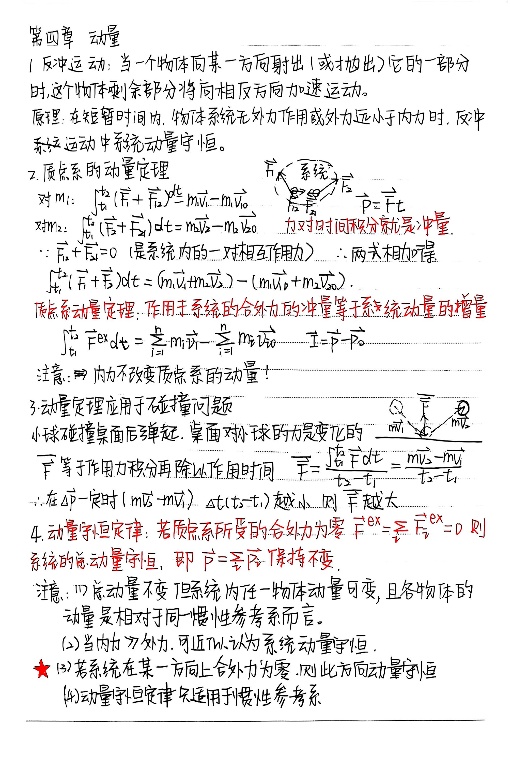 第四章 动量
1. 反冲运动: 当一个物体向某一方向射出(或抛出)它的一部分
时,这个物体剩余部分将向相反方向加速运动。
原理: 在短暂时间内, 物体系统无外力作用或外力远小于内力时, 反冲
系统运动中系统动量守恒。
2. 质点系的动量定理
F₁ 系统 F₂
F₁₂ F₂₁
对m₁: ∫_{t₁}^{t₂}(F₁+F₁₂)dt=m₁v₁-m₁v₁₀ P=Ft
对m₂: ∫_{t₁}^{t₂}(F₂+F₂₁)dt=m₂v₂-m₂v₂₀ 力对时间积分就是冲量.
∵ F₁₂+F₂₁=0 (是系统内的一对相互作用力) ∴两式相加得
∫_{t₁}^{t₂}(F₁+F₂)dt=(m₁v₁+m₂v₂)-(m₁v₁₀+m₂v₂₀).
质点系动量定理: 作用于系统的合外力的冲量等于系统动量的增量
∫_{t₁}^{t₂}F^{ex}dt=Σ_{i=1}^{n}mᵢvᵢ-Σ_{i=1}^{n}mᵢvᵢ₀ I=P-P₀
注意: ⇒ 内力不改变质点系的动量!
3. 动量定理应用于碰撞问题
小球碰撞桌面后弹起. 桌面对小球的力是变化的 mv₁ F mv₂
F等于作用力积分再除以作用时间 F=∫_{t₁}^{t₂}Fdt/(t₂-t₁)=(mv₂-mv₁)/(t₂-t₁)
∴在ΔP一定时(mv₂-mv₁) Δt(t₂-t₁)越小 则F越大
4. 动量守恒定律: 若质点系所受的合外力为零 F^{ex}=ΣFᵢ^{ex}=0 则
系统的总动量守恒, 即 P=ΣPᵢ保持不变.
注意: (1)总动量不变 但系统内任一物体动量可变, 且各物体的
动量是相对于同一惯性参考系而言。
(2)当内力≫外力. 可近似认为系统动量守恒.
★(3)若系统在某一方向上合外力为零. 则此方向动量守恒
(4)动量守恒定律只适用于惯性参考系